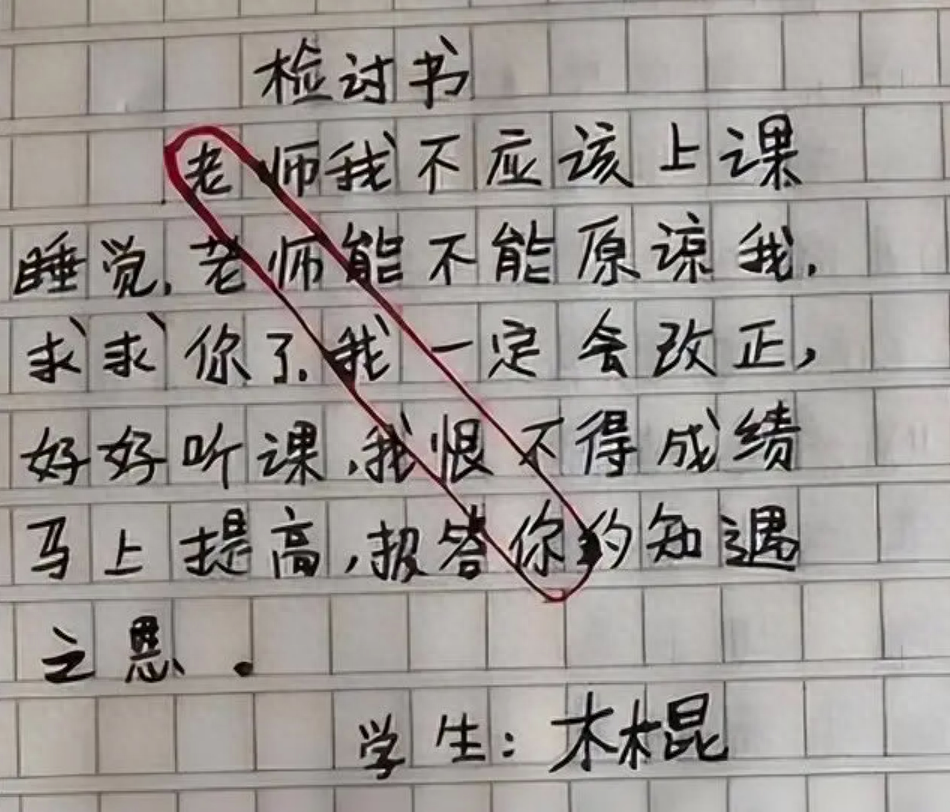 检讨书
老师我不应该上课
睡觉,老师能不能原谅我,
求求你了,我一定会改正,
好好听课,我恨不得成绩
马上提高,报答你的知遇
之恩.
学生:木棍